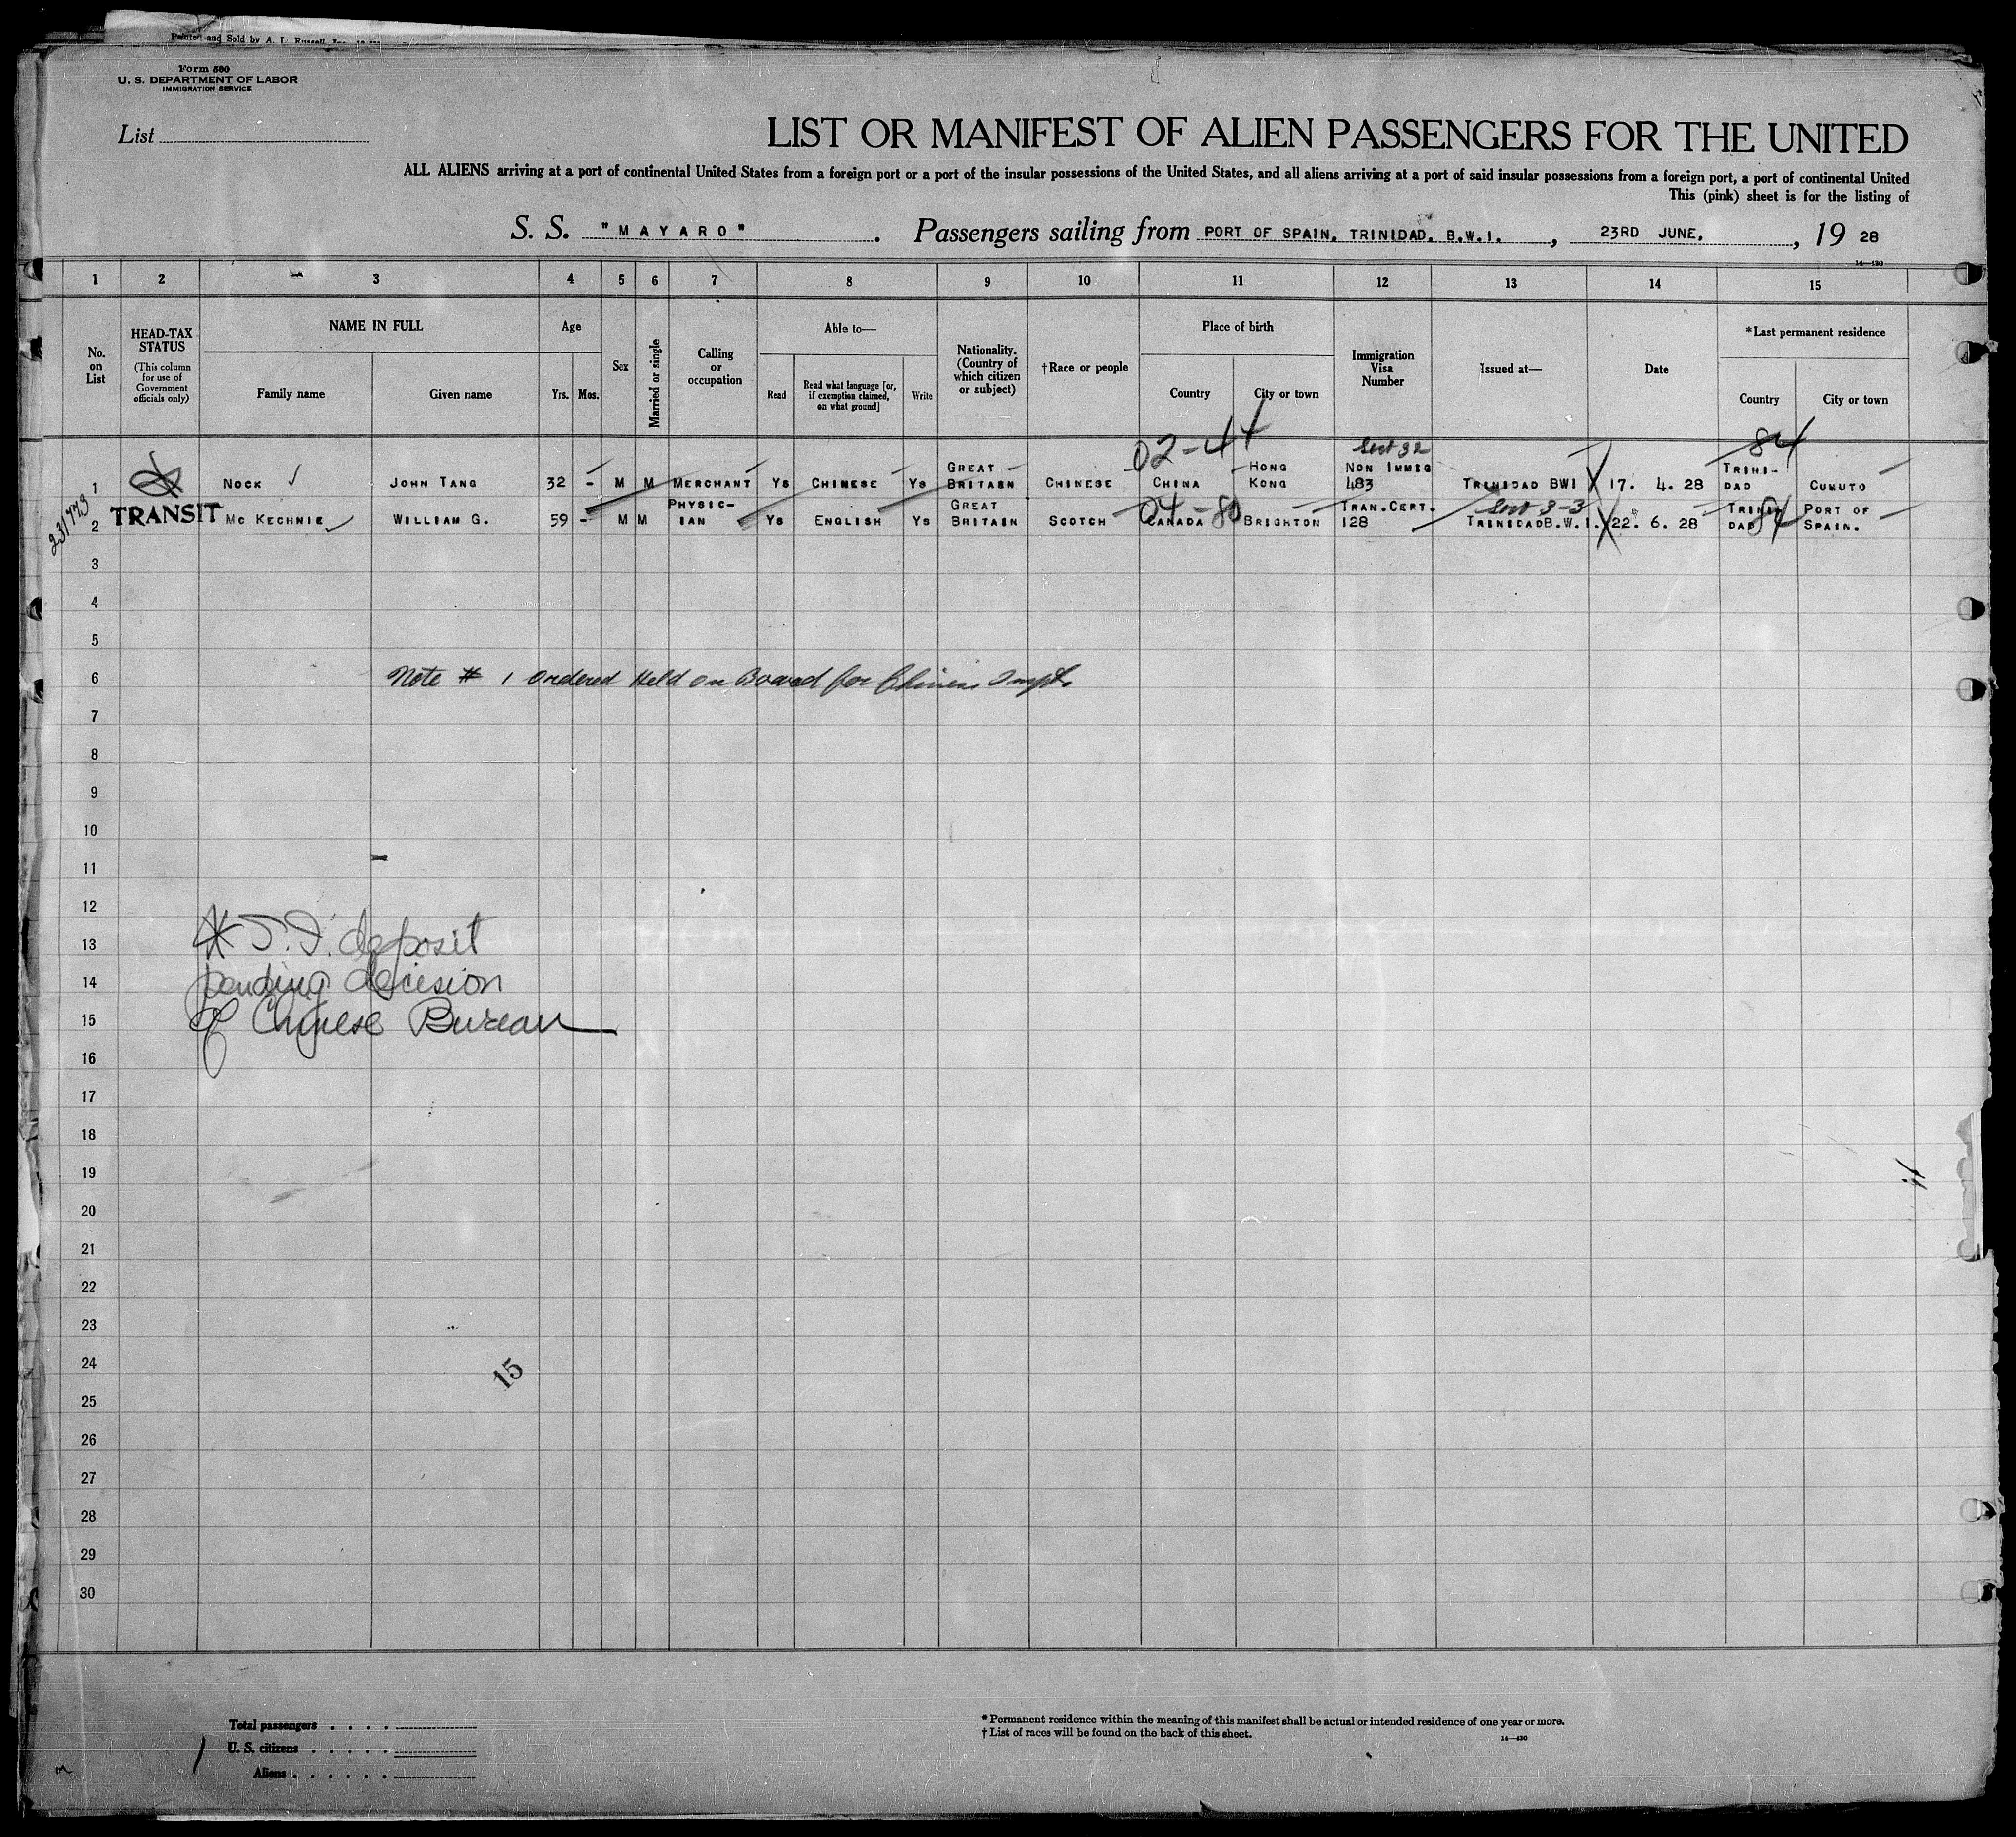 Printed and Sold by A. L. Russell, Inc.
Form 500
U. S. DEPARTMENT OF LABOR
IMMIGRATION SERVICE
List
LIST OR MANIFEST OF ALIEN PASSENGERS FOR THE UNITED
ALL ALIENS arriving at a port of continental United States from a foreign port or a port of the insular possessions of the United States, and all aliens arriving at a port of said insular possessions from a foreign port, a port of continental United
This (pink) sheet is for the listing of
S. S. "MAYARO" . Passengers sailing from PORT OF SPAIN, TRINIDAD, B.W.I. , 23RD JUNE, , 19 28
14—430
1 2 3 4 5 6 7 8 9 10 11 12 13 14 15
No. on List
HEAD-TAX STATUS
(This column for use of Government officials only)
NAME IN FULL
Family name
Given name
Age
Yrs. Mos.
Sex
Married or single
Calling or occupation
Able to—
Read
Read what language [or, if exemption claimed, on what ground]
Write
Nationality. (Country of which citizen or subject)
†Race or people
Place of birth
Country
City or town
Immigration Visa Number
Issued at—
Date
*Last permanent residence
Country
City or town
02-44 Sect 32 84
1 NOCK ✓ JOHN TANG 32 - M M MERCHANT YS CHINESE YS GREAT BRITAIN CHINESE CHINA HONG KONG NON IMMIG 483 TRINIDAD BWI X 17. 4. 28 TRINI-DAD CUNUTO
231773
04-80 Sect 3-3 84
2 TRANSIT MC KECHNIE ✓ WILLIAM G. 59 - M M PHYSIC-IAN YS ENGLISH YS GREAT BRITAIN SCOTCH CANADA BRIGHTON TRAN.CERT. 128 TRINIDAD B.W.I. X 22. 6. 28 TRINI-DAD PORT OF SPAIN.
3
4
5
6 Note # 1 Ordered Held on Board for Chinese Inspt.
7
8
9
10
11
12
13 * T.I. deposit
14 pending decision
15 of Chinese Bureau
16
17
18
19
20
21
22
23
24
15
25
26
27
28
29
30
Total passengers
U. S. citizens
Aliens
* Permanent residence within the meaning of this manifest shall be actual or intended residence of one year or more.
† List of races will be found on the back of this sheet.
14—430